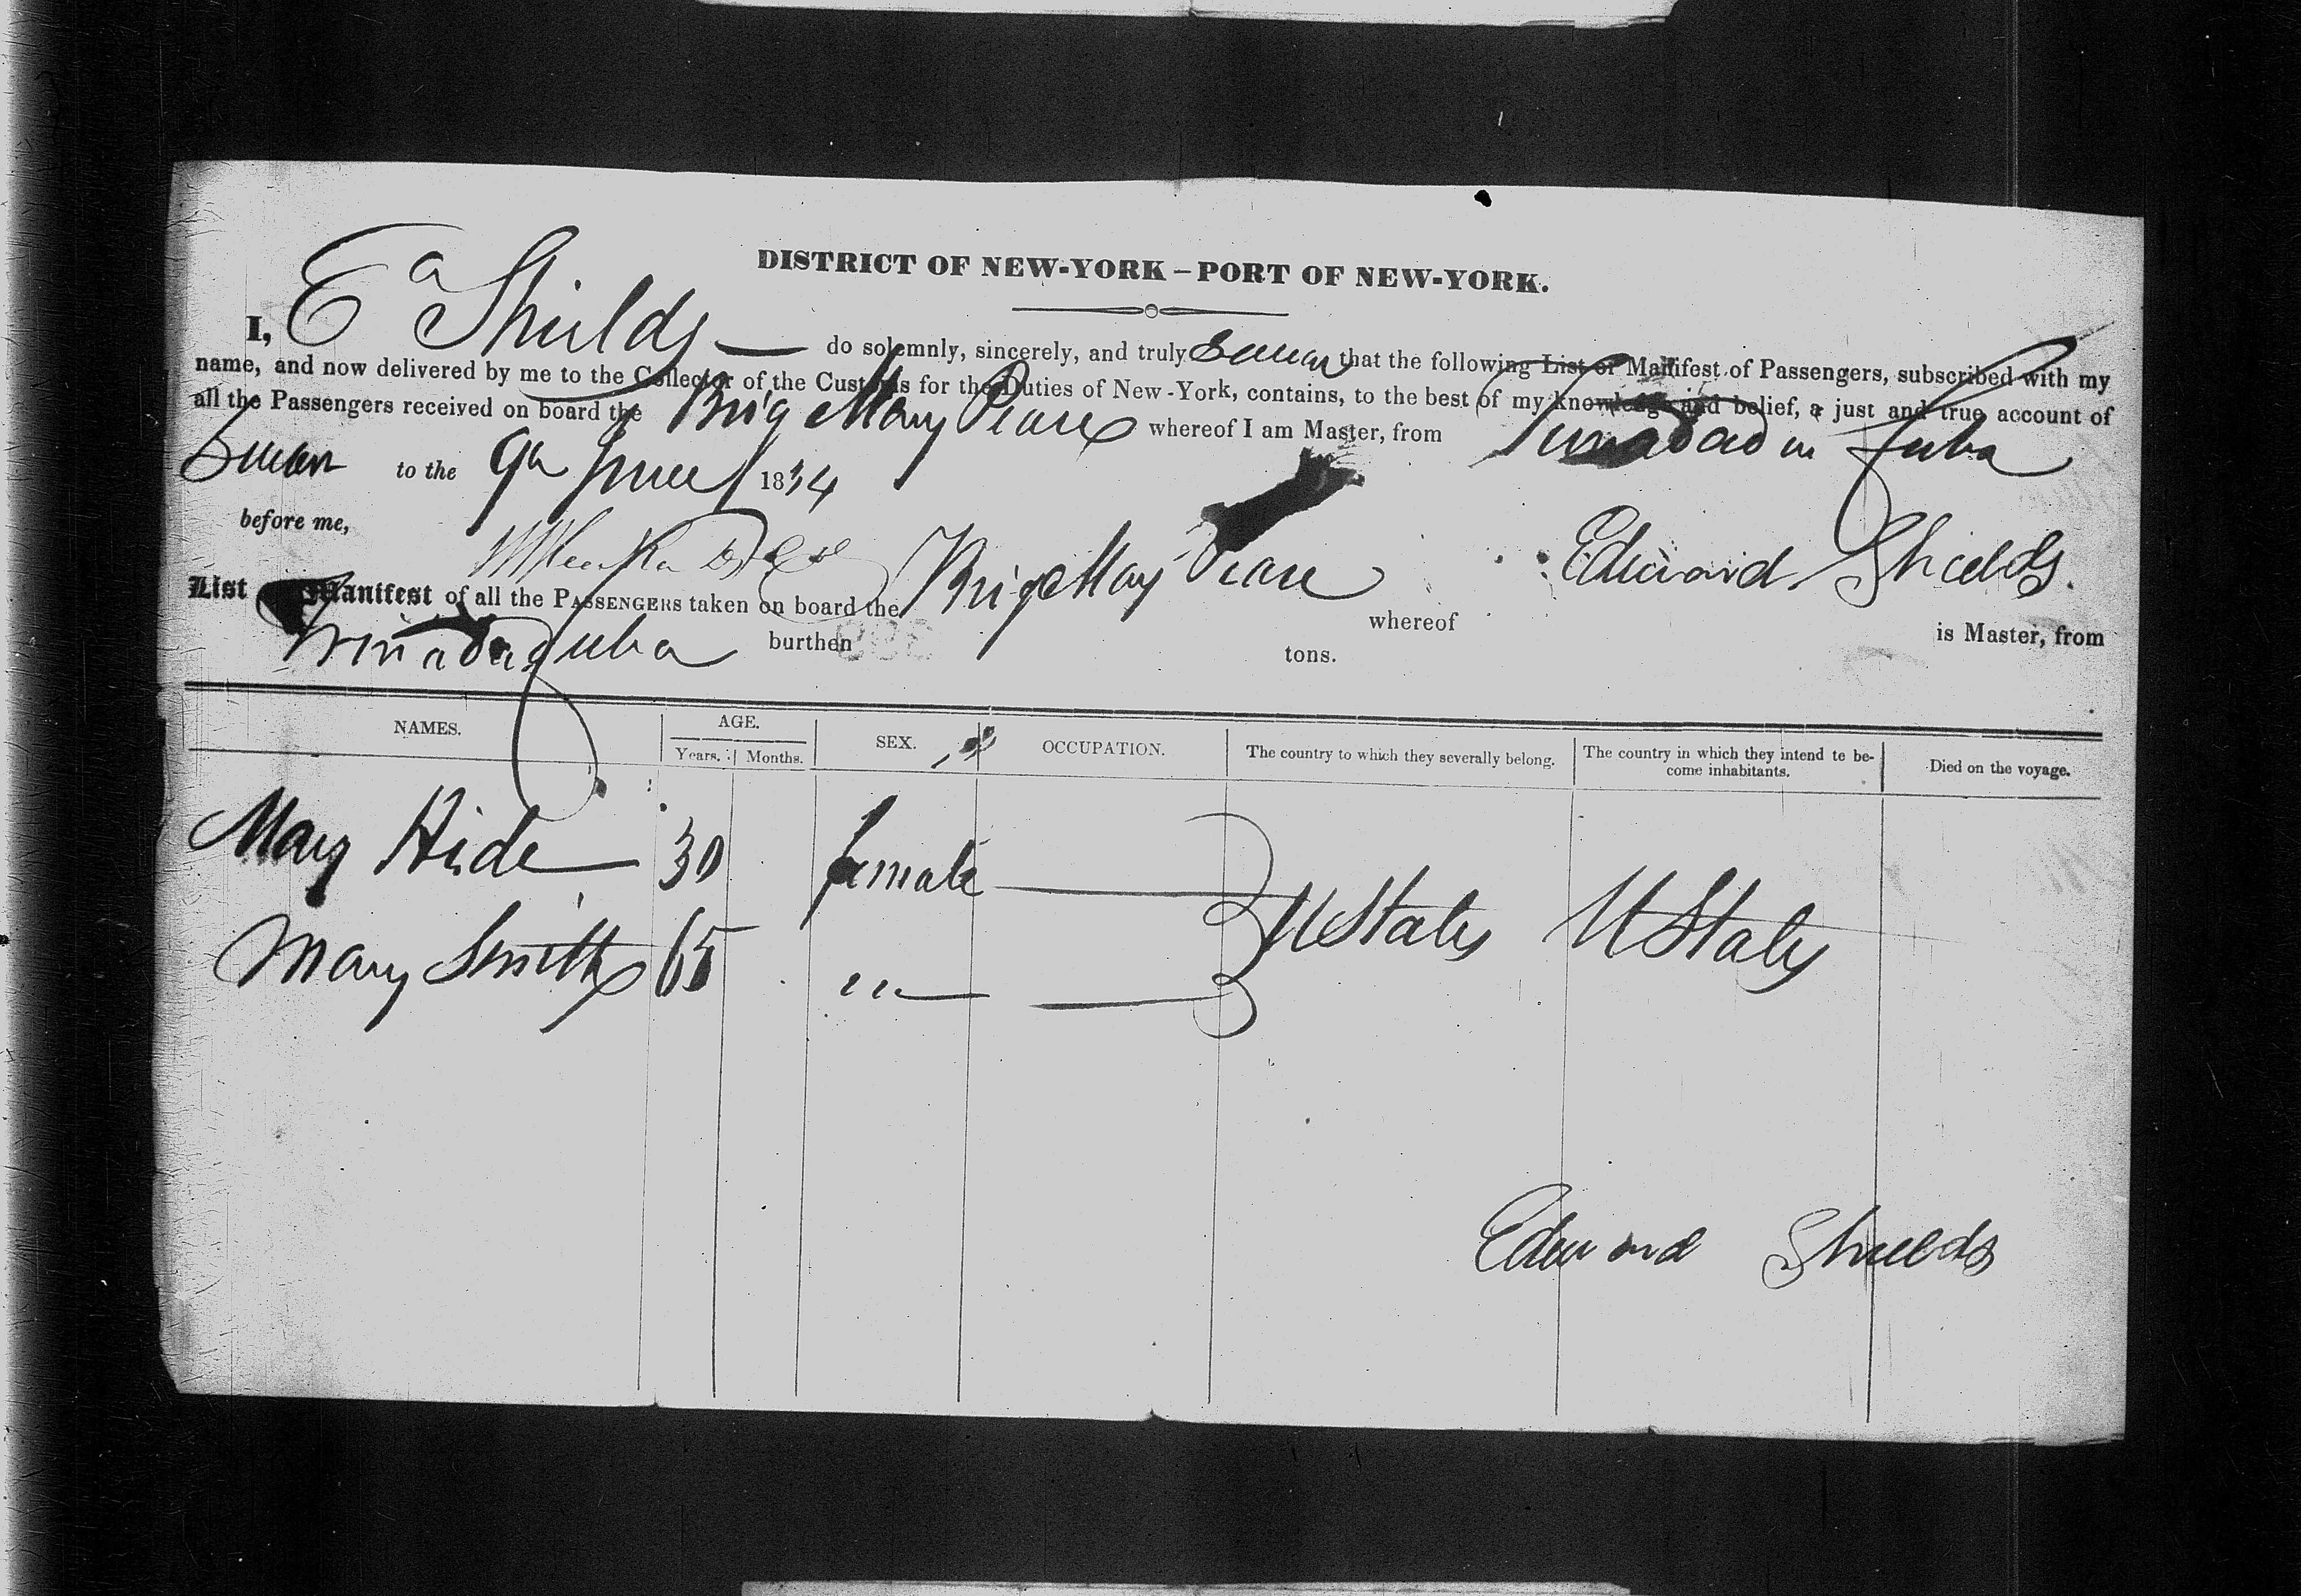 DISTRICT OF NEW-YORK – PORT OF NEW-YORK.
I, Ed Shields do solemnly, sincerely, and truly swear that the following List or Manifest of Passengers, subscribed with my
name, and now delivered by me to the Collector of the Customs for the Duties of New-York, contains, to the best of my knowledge and belief, a just and true account of
all the Passengers received on board the Brig Mary Pease whereof I am Master, from Trinadad in Cuba
Sworn to the 9th June 1834
before me,
Edward Shields.
List Manifest of all the PASSENGERS taken on board the Brig Mary Pease whereof is Master, from
Trinadad Cuba burthen tons.
NAMES. AGE. SEX. OCCUPATION. The country to which they severally belong. The country in which they intend te be-
come inhabitants. Died on the voyage.
Years. Months.
Mary Hide 30 female
U States U States
Mary Smith 65 " "
Edward Shields